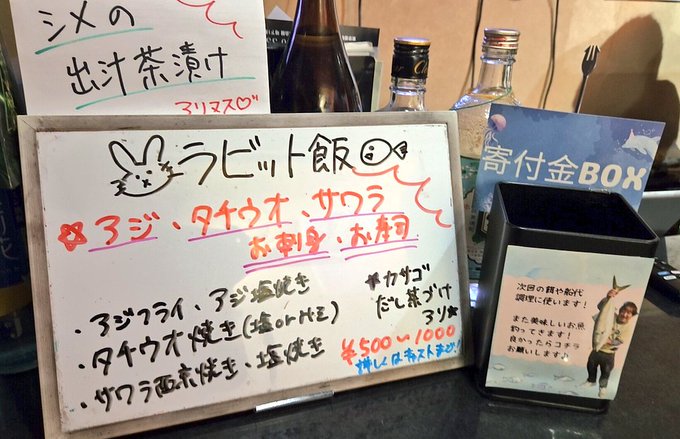 シメの
出汁茶漬け
アリマス♡
ラビット飯
☆アジ、タチウオ、サワラ
お刺身、お寿司
・アジフライ、アジ塩焼き
・タチウオ焼き(塩or
・サワラ西京焼き・塩焼き
カサゴ
だし茶づけ
アリ☆
¥500〜1000
詳しくはキャストまで!
寄付金BOX
次回の餌や船代
調理に使います!
また美味しいお魚
釣ってきます!
良かったらコチラ
お願いします♪